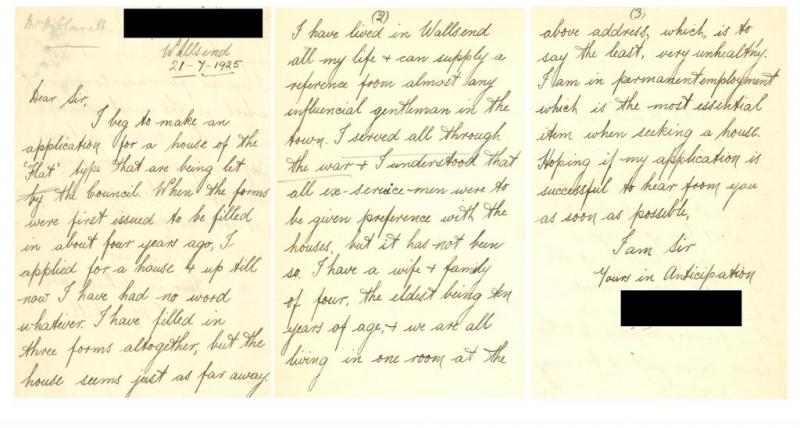 Wallsend
21-7-1925
Dear Sir,
I beg to make an
application for a house of the
'Flat' type that are being let
by the Council. When the forms
were first issued to be filled
in about four years ago, I
applied for a house & up till
now I have had no word
whatever. I have filled in
three forms altogether, but the
house seems just as far away.
(2)
I have lived in Wallsend
all my life & can supply a
reference from almost any
influencial gentleman in the
town. I served all through
the war & I understood that
all ex-service-men were to
be given preference with the
houses, but it has not been
so. I have a wife & family
of four, the eldest being ten
years of age, & we are all
living in one room at the
(3)
above address, which is to
say the least, very unhealthy.
I am in permanent employment
which is the most essential
item when seeking a house.
Hoping if my application is
successful to hear from you
as soon as possible,
I am Sir
Yours in Anticipation